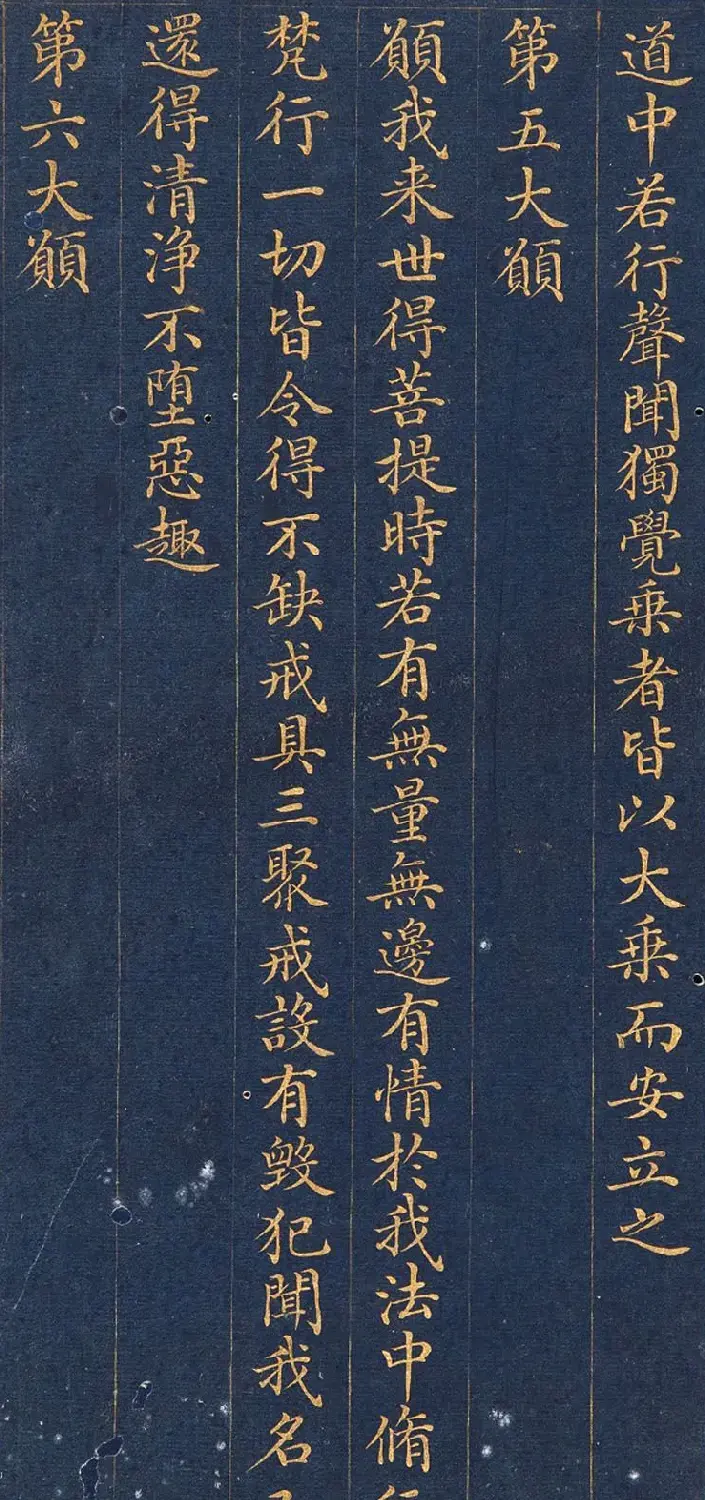 道中若行聲聞獨覺乗者皆以大乗而安立之
第五大願
願我来世得菩提時若有無量無邊有情於我法中脩
梵行一切皆令得不缺戒具三聚戒設有毀犯聞我名
還得清浄不堕惡趣
第六大願